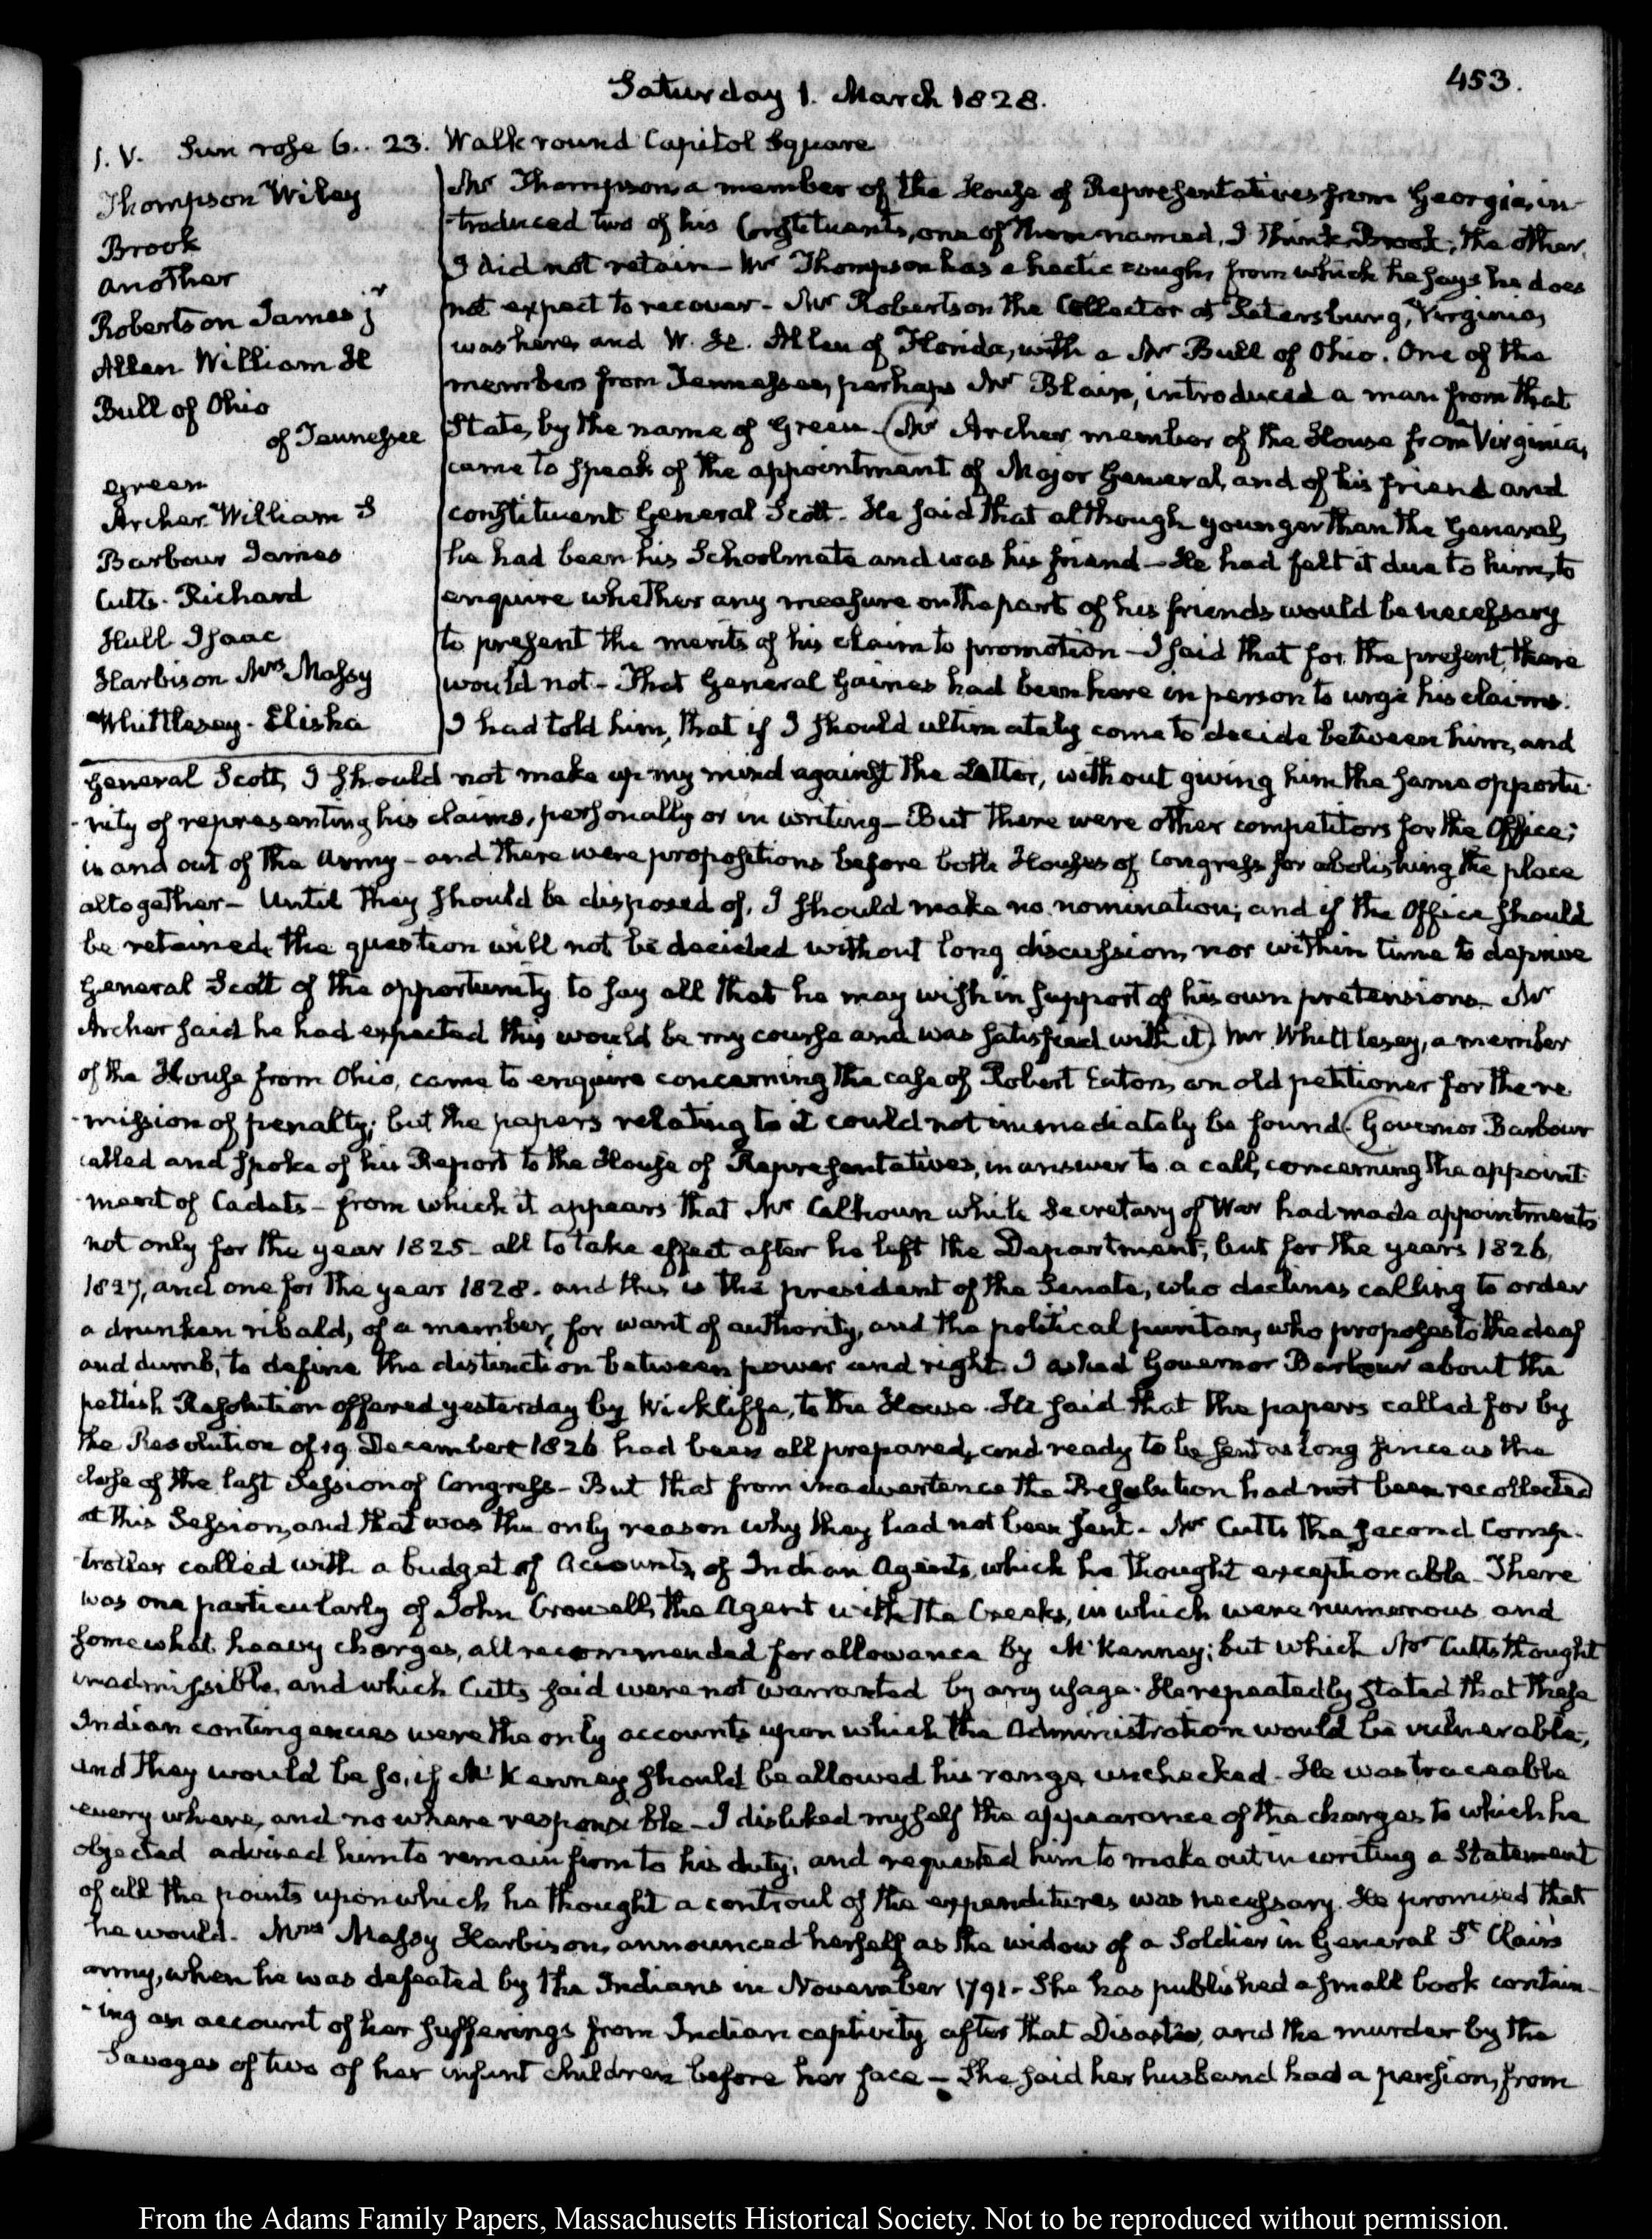 453.
Saturday 1. March 1828.
I. V. Sun rose 6..23. Walk round Capitol Square
Thompson Wiley
Brook
another
Robertson James jr
Allen William H
Bull of Ohio
of Tennessee
Green
Archer William S
Barbour James
Cutts. Richard
Hull Isaac
Harbison Mrs Massy
Whittlesey. Elisha
Mr Thompson, a member of the House of Representatives from Georgia, in-
-troduced two of his Constituents, one of them named, I think Brook; the other,
I did not retain— Mr Thompson has a hectic cough, from which he says he does
not expect to recover— Mr Robertson the Collector at Petersburg, Virginia,
was here, and W. H. Allen of Florida, with a Mr Bull of Ohio. One of the
members from Tennessee, perhaps Mr Blair, introduced a man from that
State, by the name of Green— (Mr Archer member of the House from Virginia,
came to speak of the appointment of Major General, and of his friend and
constituent General Scott. He said that although younger than the General,
he had been his Schoolmate and was his friend— He had felt it due to him, to
enquire whether any measure on the part of his friends would be necessary
to present the merits of his claim to promotion— I said that for the present, there
would not— That General Gaines had been here in person to urge his claims.
I had told him, that if I should ultimately come to decide between him, and
General Scott, I should not make up my mind against the latter, without giving him the same opportu-
-nity of representing his claims, personally or in writing— But there were other competitors for the Office;
in and out of the Army— and there were propositions before both Houses of Congress for abolishing the place
altogether— Until they should be disposed of, I should make no nomination; and if the Office should
be retained, the question will not be decided without long discussion, nor within time to deprive
General Scott of the opportunity to say all that he may wish in support of his own pretensions— Mr
Archer said he had expected this would be my course and was satisfied with it) Mr Whittlesey, a member
of the House from Ohio, came to enquire concerning the case of Robert Eaton, an old petitioner for the re
-mission of penalty; but the papers relating to it could not immediately be found. (Governor Barbour
called and spoke of his Report to the House of Representatives, in answer to a call, concerning the appoint-
-ment of Cadets— from which it appears that Mr Calhoun while Secretary of War had made appointments
not only for the year 1825— all to take effect after he left the Department; but for the years 1826,
1827, and one for the year 1828. and this is the president of the Senate, who declines calling to order
a drunken ribald, of a member, for want of authority, and the political puritan, who proposes to the deaf
and dumb, to define the distinction between power and right. I asked Governor Barbour about the
pettish Resolution offered yesterday by Wickliffe, to the House. He said that the papers called for by
the Resolution of 19 December 1826 had been all prepared, and ready to be sent as long since as the
close of the last Session of Congress— But that from inadvertence the Resolution had not been recollected)
at this Session, and that was the only reason why they had not been sent— Mr Cutts the second Comp-
-troller called with a budget of Accounts, of Indian Agents, which he thought exceptionable— There
was one particularly of John Crowell, the Agent with the Creeks, in which were numerous and
somewhat heavy charges, all recommended for allowance by McKenney; but which Mr Cutts thought
inadmissible, and which Cutts said were not warranted by any usage. He repeatedly stated that these
Indian contingencies were the only accounts upon which the Administration would be vulnerable;
and they would be so, if McKenney should be allowed his range, unchecked— He was traceable
every where, and no where responsible— I disliked myself the appearance of the charges to which he
objected advised him to remain firm to his duty; and requested him to make out in writing a Statement
of all the points upon which he thought a controul of the expenditures was necessary. He promised that
he would. Mrs Massy Harbison, announced herself as the widow of a Soldier in General St Clair's
army, when he was defeated by the Indians in November 1791— She has published a small book contain-
-ing an account of her sufferings from Indian captivity after that Disaster, and the murder by the
Savages of two of her infant children before her face— She said her husband had a pension, from
From the Adams Family Papers, Massachusetts Historical Society. Not to be reproduced without permission.